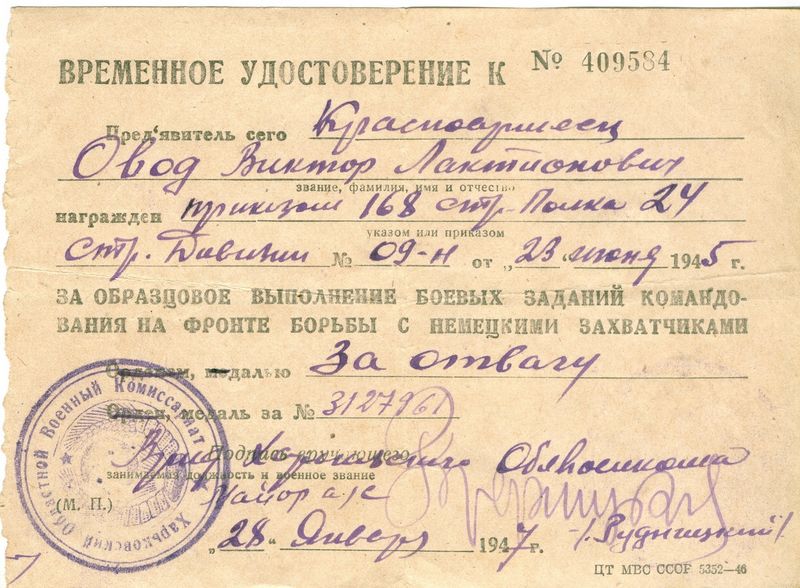 ВРЕМЕННОЕ УДОСТОВЕРЕНИЕ К № 409584
Пред'явитель сего Красноармеец
Овод Виктор Лактионович
звание, фамилия, имя и отчество
награжден приказом 168 стр. Полка 24
указом или приказом
стр. Дивизии № 09-н от „23" июня 1945 г.
ЗА ОБРАЗЦОВОЕ ВЫПОЛНЕНИЕ БОЕВЫХ ЗАДАНИЙ КОМАНДО-
ВАНИЯ НА ФРОНТЕ БОРЬБЫ С НЕМЕЦКИМИ ЗАХВАТЧИКАМИ
Орденом, медалью За отвагу
Орден, медаль за № 3127961
Подпись вручающего
Харьковского Облвоенкома
занимаемая должность и военное звание
майор а/с
(М. П.)
„28" Января 1947 г. /Рудницкий/
Харьковский Областной Военный Комиссариат
ЦТ МВС СССР 5352—46